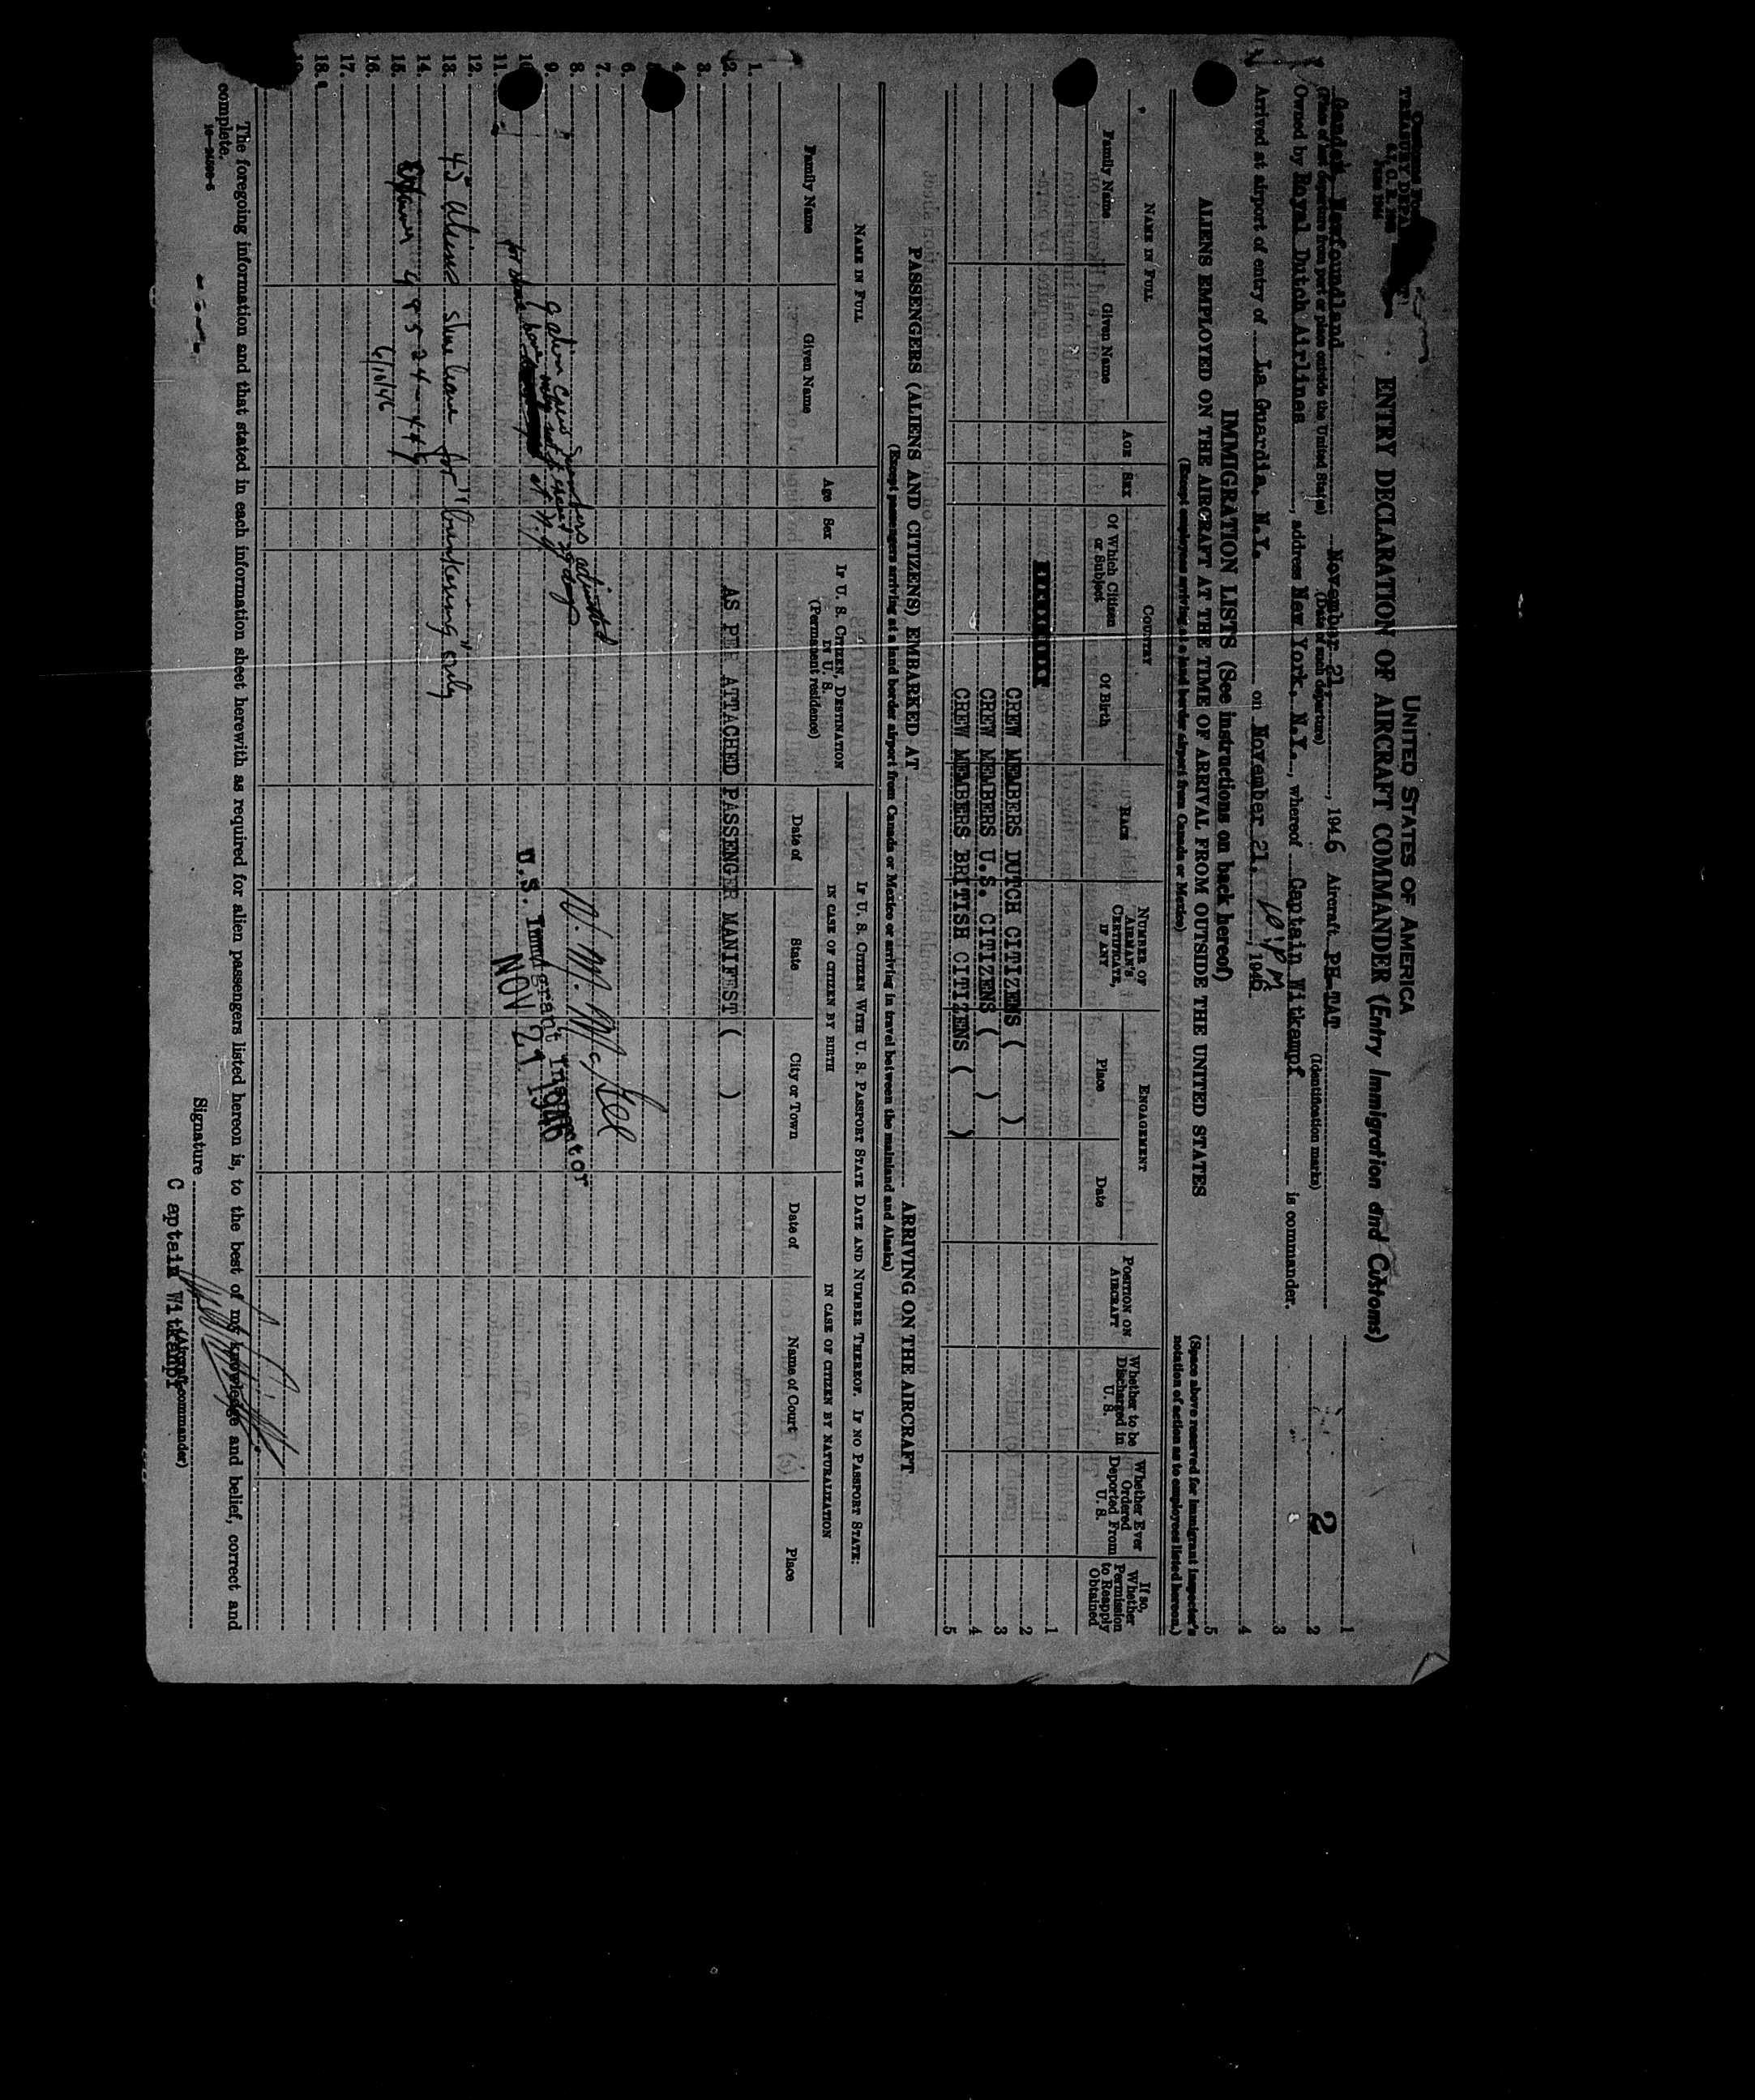 UNITED STATES OF AMERICA
ENTRY DECLARATION OF AIRCRAFT COMMANDER (Entry Immigration and Customs)
2
Gander, Newfoundland November 21, 1946 Aircraft PH-TAT
(Place of last departure from port or place outside the United States) (Date of such departure) (Identification marks)
Owned by Royal Dutch Airlines, address New York, N.Y., whereof Captain Witkampf is commander.
Arrived at airport of entry of La Guardia, N.Y. on November 21, 1946
IMMIGRATION LISTS (See instructions on back hereof)
1
2
3
4
5
(Space above reserved for immigrant inspector's notation of action as to employees listed hereon.)
ALIENS EMPLOYED ON THE AIRCRAFT AT THE TIME OF ARRIVAL FROM OUTSIDE THE UNITED STATES
(Except employees arriving at a land border airport from Canada or Mexico)
NAME IN FULL
Family Name
Given Name
AGE
SEX
COUNTRY
Of Which Citizen or Subject
Of Birth
RACE
NUMBER OF AIRMAN'S CERTIFICATE, IF ANY
ENGAGEMENT
Place
Date
POSITION ON AIRCRAFT
Whether to be Discharged in U. S.
Whether Ever Ordered Deported From U. S.
If so, Whether Permission to Reapply Obtained
1
CREW MEMBERS DUTCH CITIZENS ( ) 2
CREW MEMBERS U.S. CITIZENS ( ) 3
CREW MEMBERS BRITISH CITIZENS ( ) 4
5
PASSENGERS (ALIENS AND CITIZENS) EMBARKED AT ARRIVING ON THE AIRCRAFT
(Except passengers arriving at a land border airport from Canada or Mexico or arriving in travel between the mainland and Alaska)
NAME IN FULL
Family Name
Given Name
Age
Sex
IF U. S. CITIZEN, DESTINATION IN U. S.
(Permanent residence)
IF U. S. CITIZEN WITH U. S. PASSPORT STATE DATE AND NUMBER THEREOF. IF NO PASSPORT STATE:
IN CASE OF CITIZEN BY BIRTH
Date of
State
City or Town
IN CASE OF CITIZEN BY NATURALIZATION
Date of
Name of Court
Place
1.
2. AS PER ATTACHED PASSENGER MANIFEST ( )
3.
4.
6.
7.
8.
9.
U.S. Immigrant Inspector
NOV 21 1946
11.
12.
13. 45 Aliens shore leave for "bunkering" only
14.
15.
6/10/46
16.
17.
18.
The foregoing information and that stated in each information sheet herewith as required for alien passengers listed hereon is, to the best of my knowledge and belief, correct and
complete.
Signature
Captain Witkampf
(Aircraft commander)